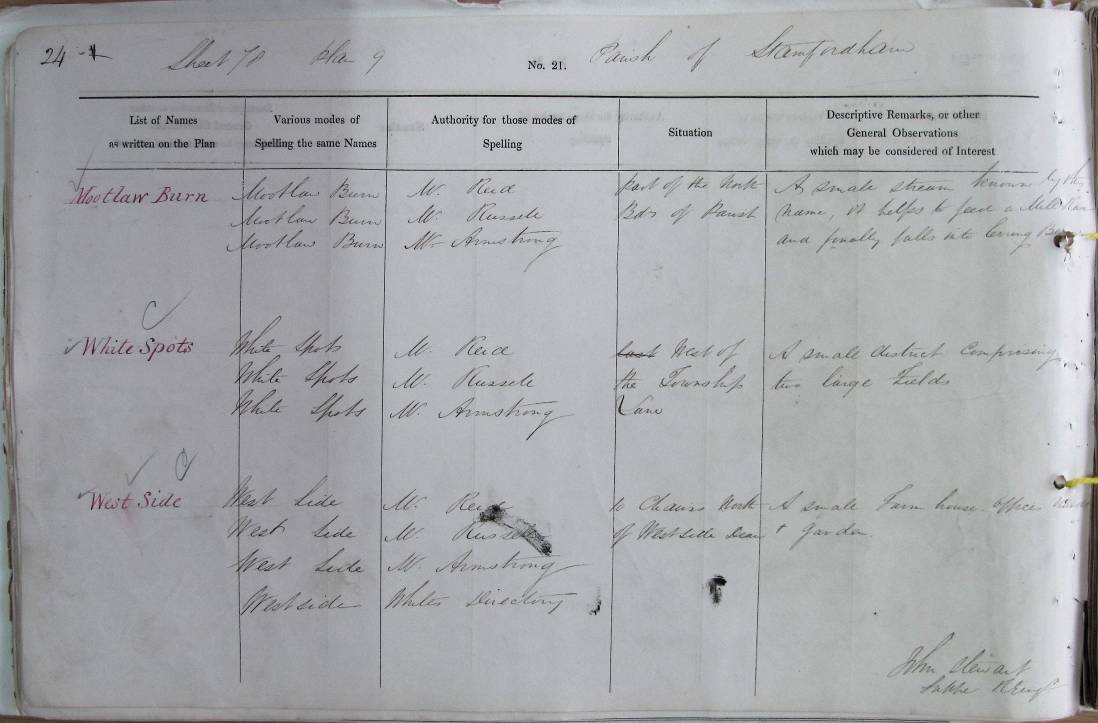 24
Sheet 78 Plan 9 No. 21. Parish of Stamfordham
List of Names as written on the Plan
Various modes of Spelling the same Names
Authority for those modes of Spelling
Situation
Descriptive Remarks, or other General Observations which may be considered of Interest
Mootlaw Burn Mootlaw Burn Mr. Reid Part of the North A small stream known by this
Mootlaw Burn Mr. Russell Bdy of Parish name, it helps to feed a Mill Race
Mootlaw Burn Mr. Armstrong and finally falls into Burn
White Spots White Spots Mr. Reid East West of A small district Comprising
White Spots Mr. Russell the Township two large Fields
White Spots Mr. Armstrong Lane
West Side West Side Mr. Reid 10 Chains North A small Farm house offices
West Side Mr. Russell of Westside Dean & Garden.
West Side Mr. Armstrong
Westside Whites Directory
John Stewart
Sapper R Engrs